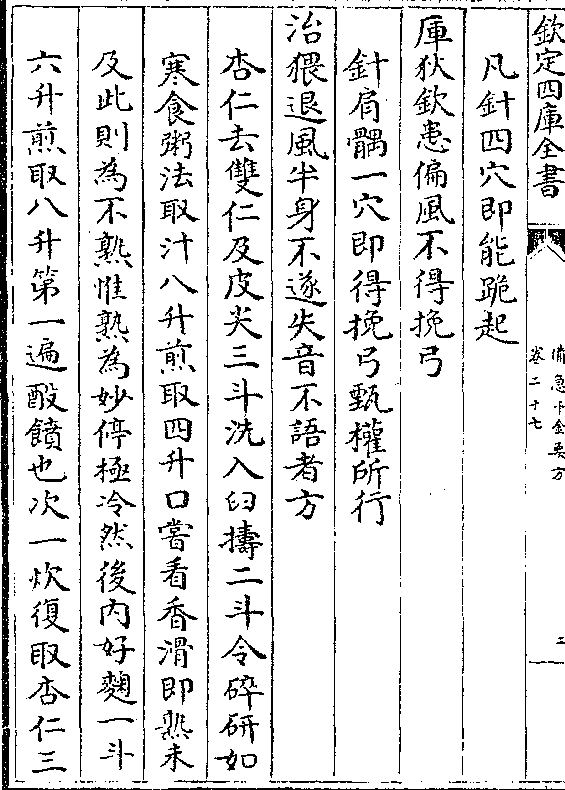 欽定四庫全書
備急千金要方
卷二十七
二
凡針四穴即能跪起
庫狄欽患偏風不得挽弓
針肩髃一穴即得挽弓甄權所行
治猥退風半身不遂失音不語者方
杏仁去雙仁及皮尖三斗洗入臼擣二斗令碎研如
寒食粥法取汁八升煎取四升口嘗看香滑即熟未
及此則為不熟惟熟為妙停極冷然後内好麴一斗
六升煎取八升第一遍酘饙也次一炊復取杏仁三